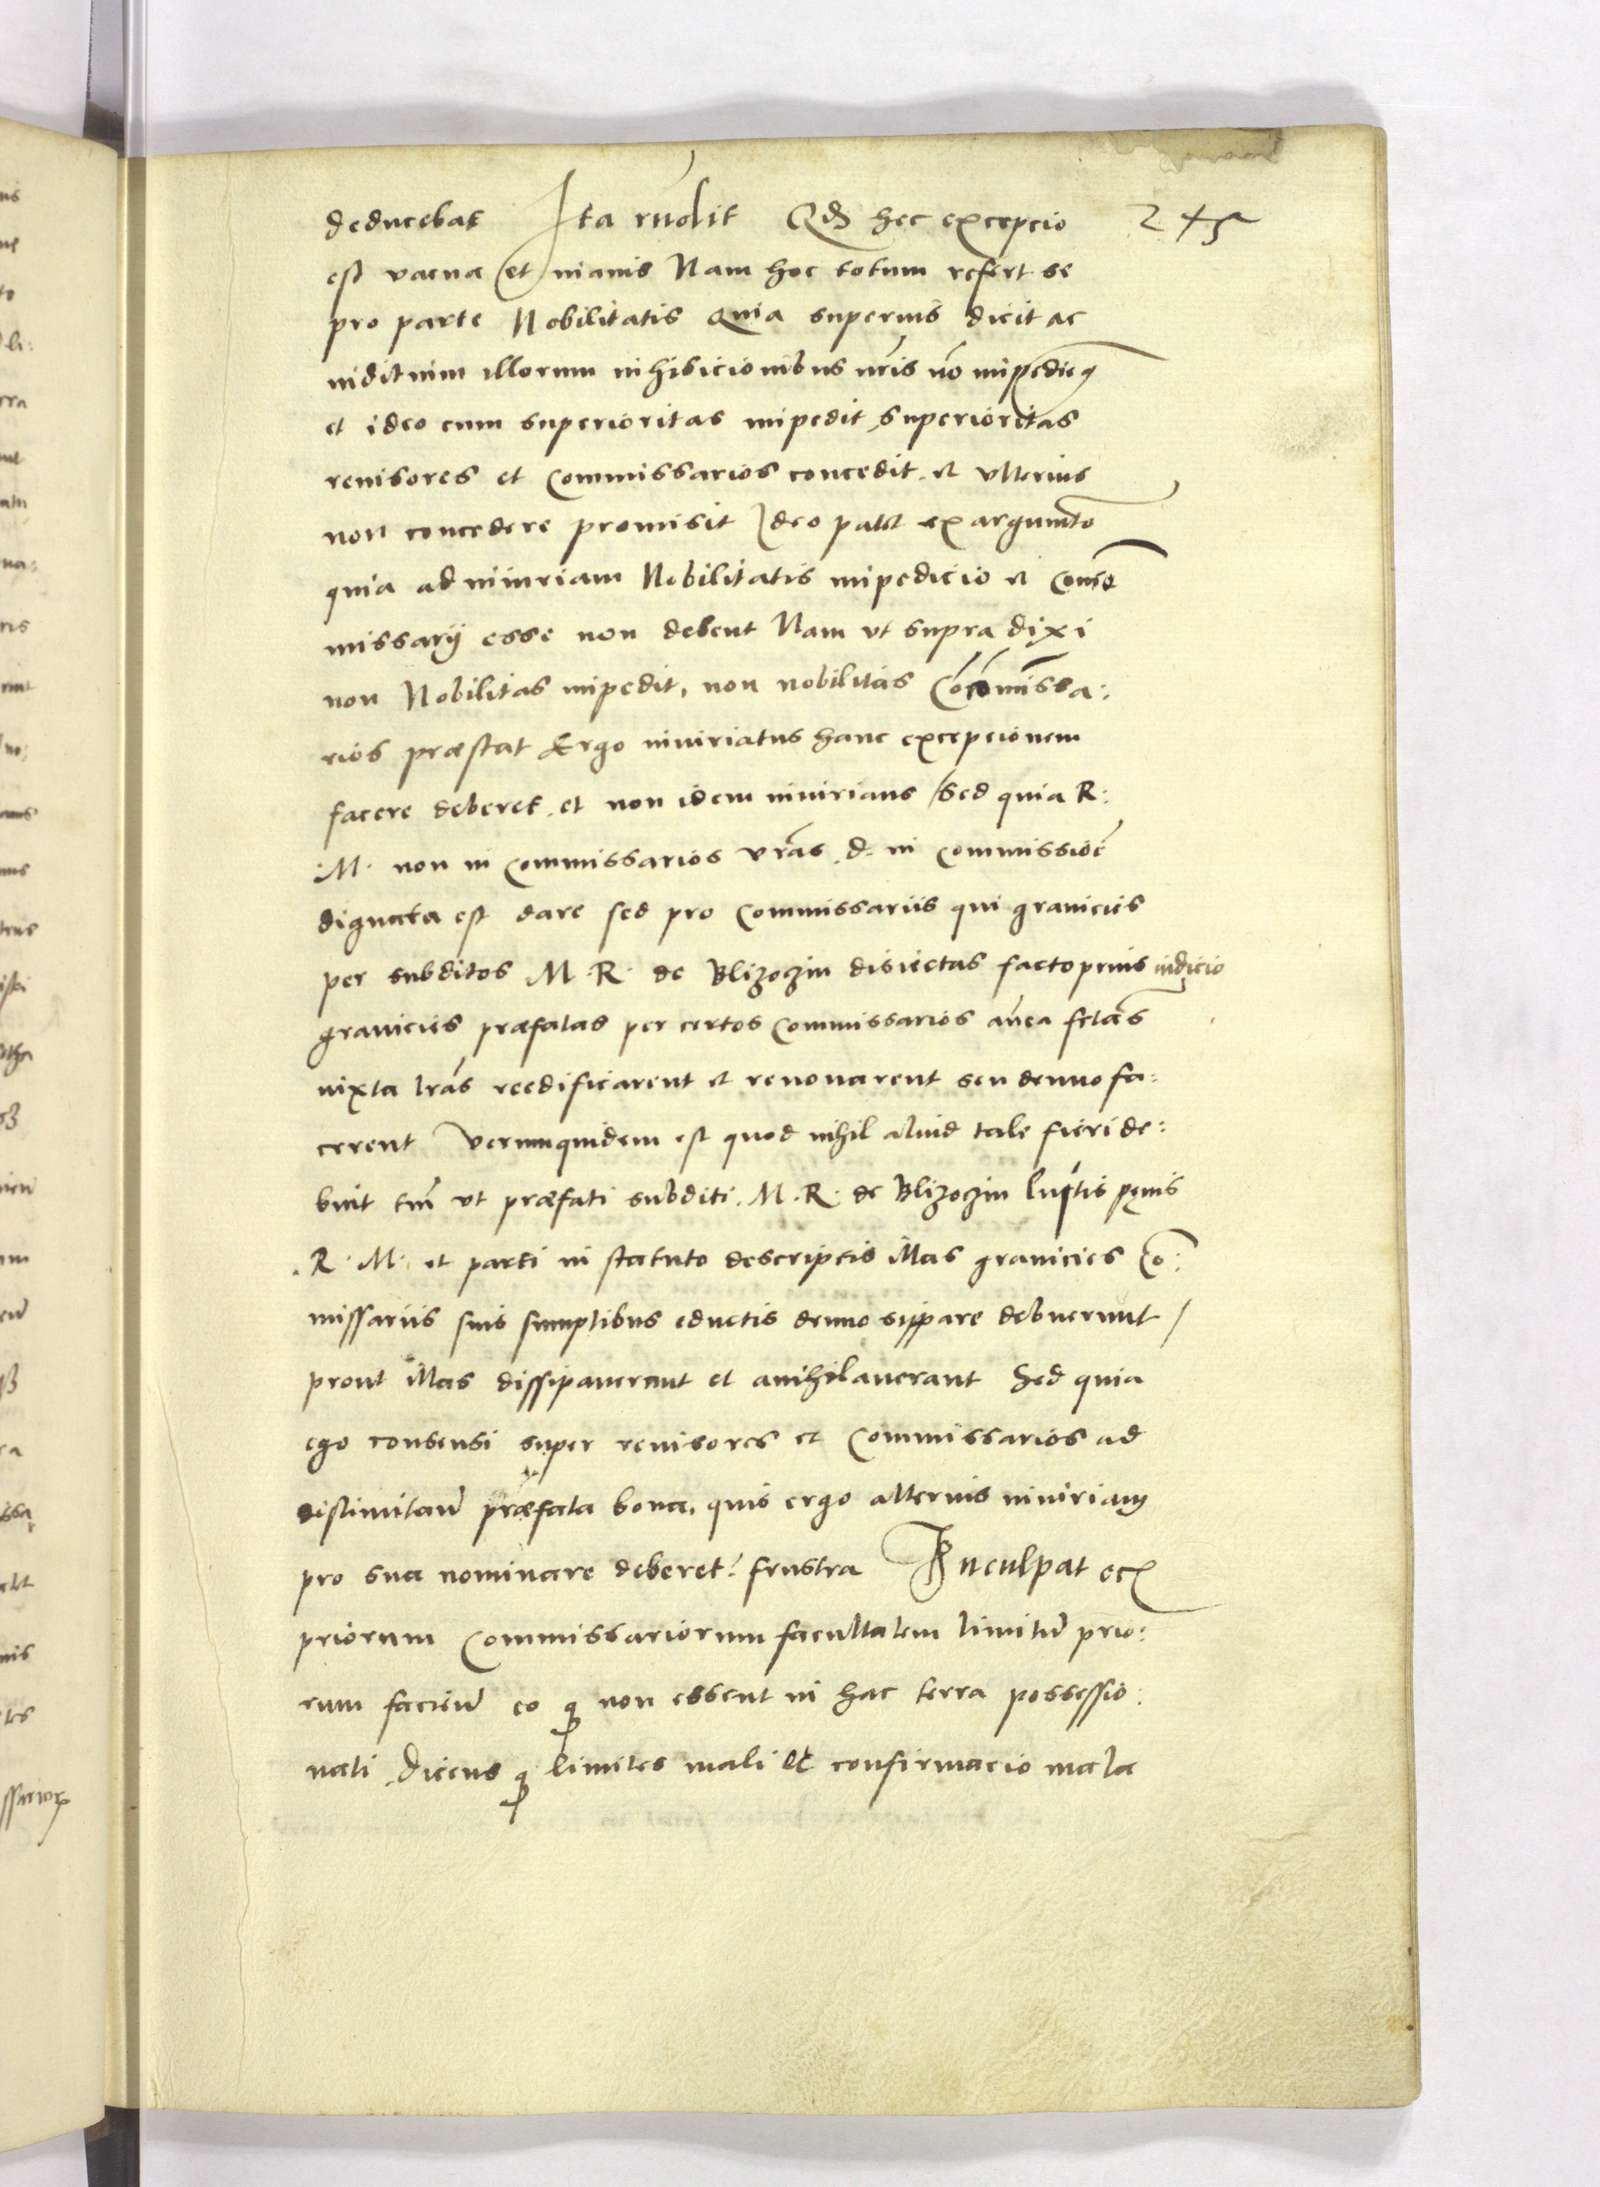 deducebat Ita rńvolit Qđ hec excepcio 245
est vacua et inanis Nam hoc totum refert se
pro parte Nobilitatis Quia superius dicit ac
illorum inhibicionibus nr̃is nõ
et ideo cum superioritas impedit superioritas
revisores et Commissarios concedit et ulterius
non concedere promisit Ideo patet ex argumẽto
quia ad iniuriam Nobilitatis impedicio et Com̃
missarij esse non debent Nam ut supra dixi
non Nobilitas impedit, non nobilitas Com̃issa:
rios præstat Ergo iniuriatus hanc excepcionem
facere deberet et non idem iniurians Sed quia R:
M. non in Commissarios vr̃as d. in commissioẽ
dignata est dare sed pro Commissariis qui granicies
per subditos M. R. de Blizoczin disiectas facto prius iudicio
granicies præfatas per certos Commissarios añea fctãs
iuxta lr̃as reedificarent et renovarent seu denuo fa:
cerent Verumquidem est quod nihil aliud tale fieri de:
buit tm̃ ut præfati subditi M. R. de Blizoczin penis
R. M. et parti in statuto descriptis illas granicies Cõ:
missariis suis sumptibus eductis denuo sippare debuerunt
prout illas dissipaverunt et anihilaverant Sed quia
ego consensi super revisores et Commissarios ad
præfata bona, quis ergo alterius iniuriam
pro sua nominare deberet? frustra Inculpat ec
priorum Commissariorum facultatem limitũ prio:
rum facieñ eo q̃ non essent in hac terra possessio:
nati Dicens q̃ limites mali et confirmacio mala